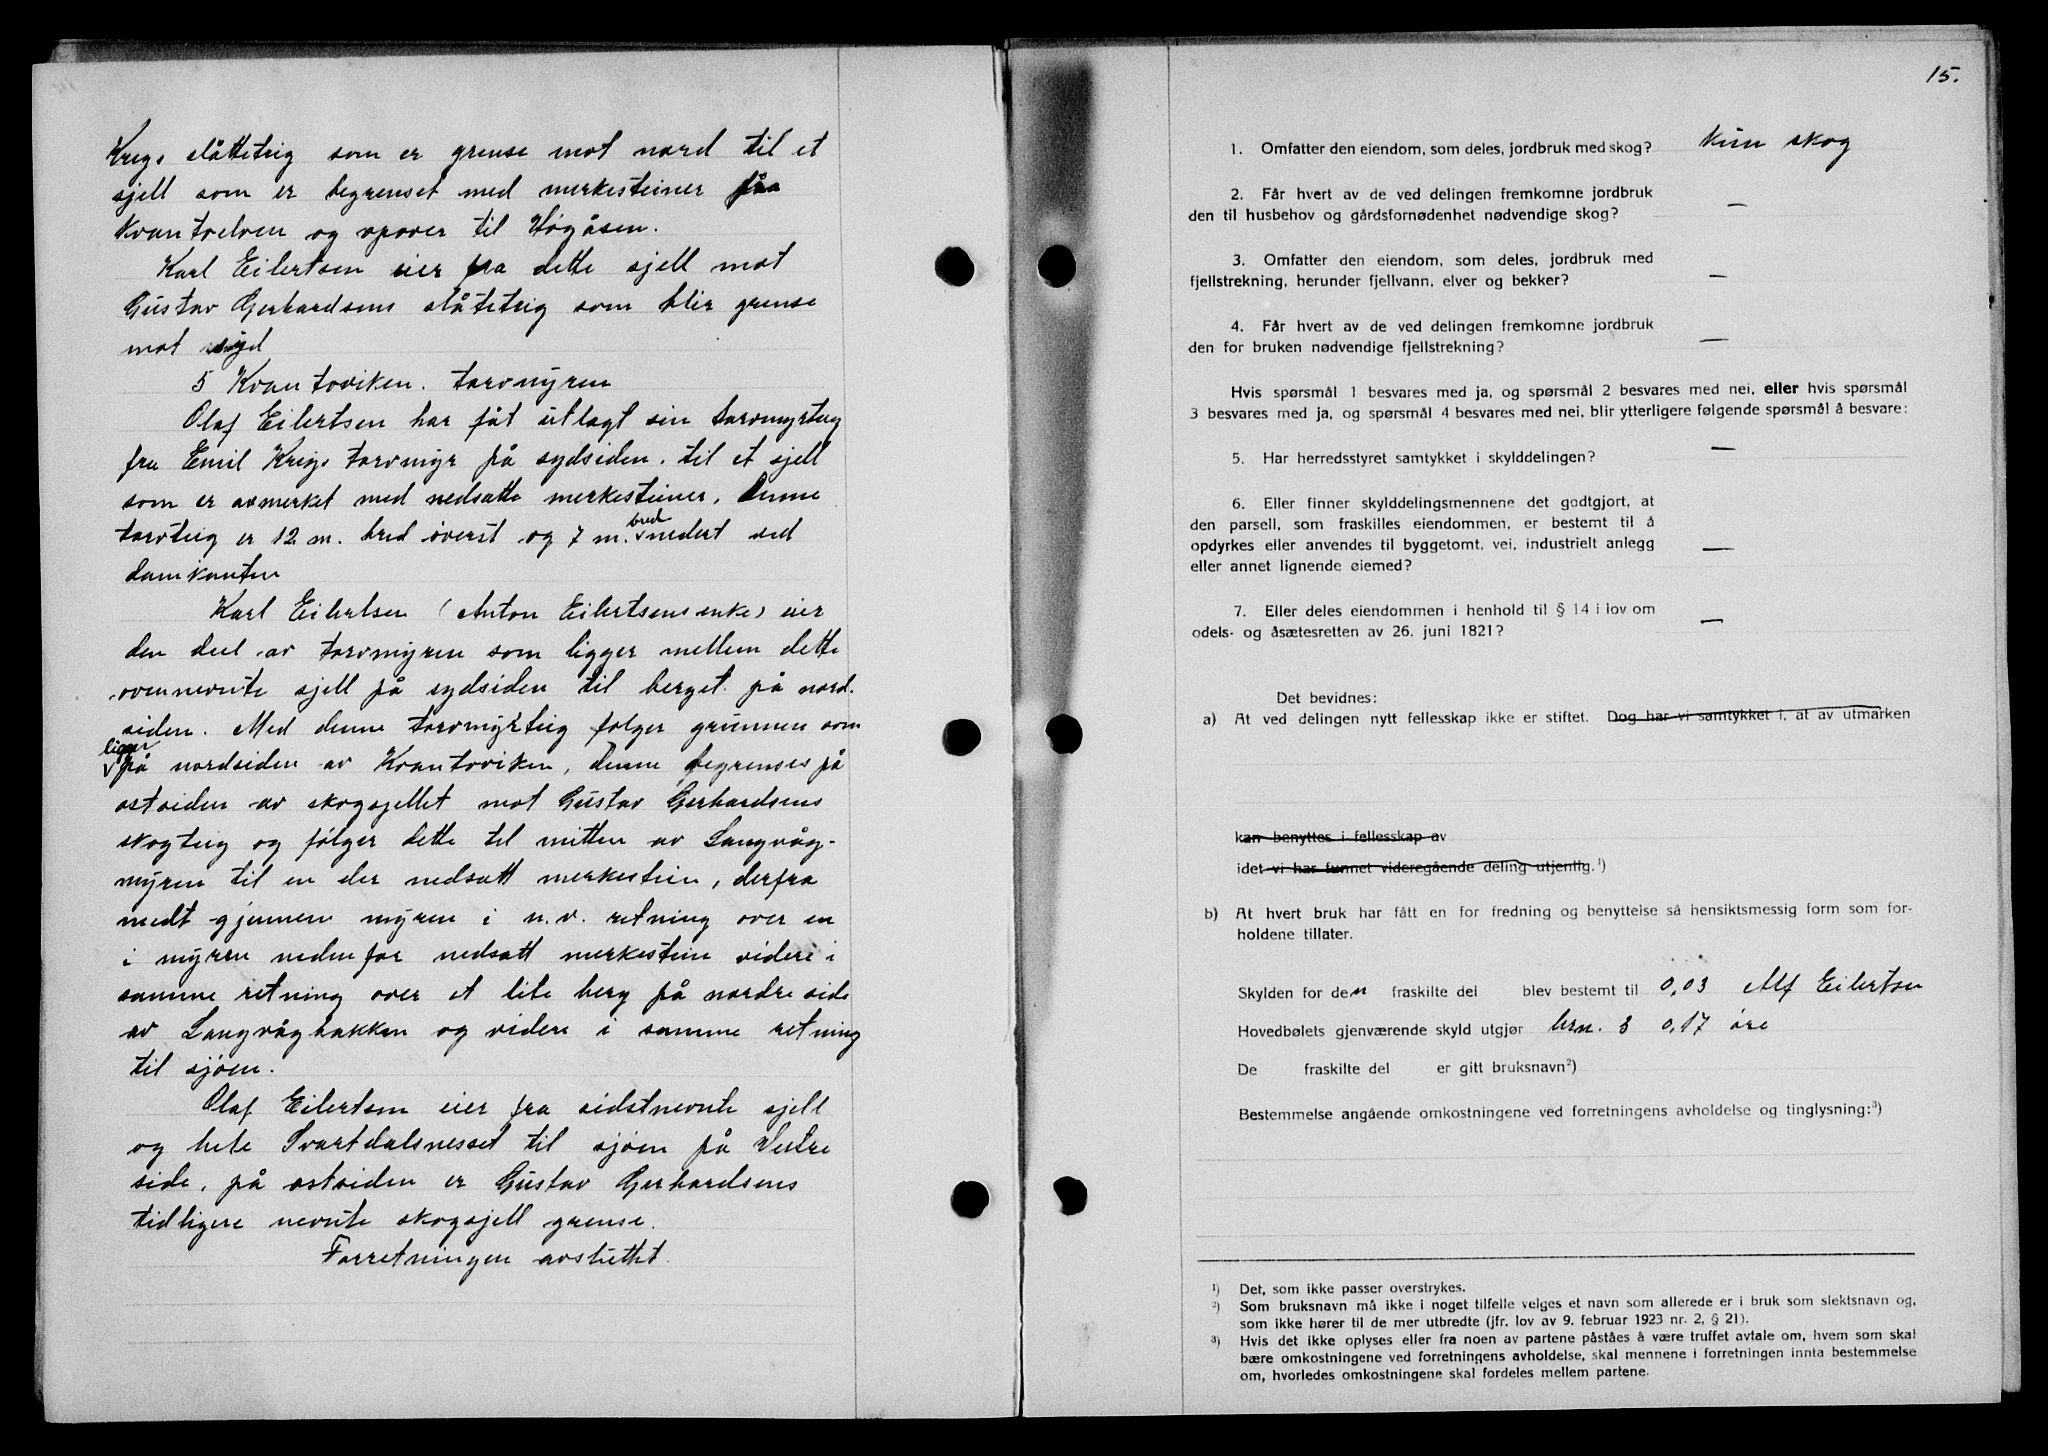 Krigs slåtteteig som er grense mot nord til et
sjell som er begrenset med merkesteiner fra
Kvantoelven og opover til Høgåsen.
Karl Eilertsen eier fra dette sjell mot
Gustav Gerhardsens slåtteteig som blir grense
mot syd
5 Kvantoviken. torvmyren
Olaf Eilertsen har fåt utlagt sin torvmyrteig
fra Emil Krigs torvmyr på sydsiden. til et sjell
som er avmerket med nedsatte merkesteiner. Denne
torvteig er 12 m. bred øverst og 7 m. bred nederst ved
damkanten
Karl Eilertsen (Anton Eilertsens enke) eier
den deel av torvmyren som ligger mellem dette
ovennevnte sjell på sydsiden til berget på nord-
siden. Med denne torvmyrteig følger grunnen som
ligger på nordsiden av Kvantoviken, denne begrenses på
østsiden av skogsjellet mot Gustav Gerhardsens
skogteig og følger dette til mitten av Langvåg-
myren til en der nedsatt merkestein, derfra
nedt gjennem myren i n.v. retning over en
i myren nedenfor nedsatt merkestein videre i
samme retning over et lite berg på nordre side
av Langvågbakken og videre i samme retning
til sjøen.
Olaf Eilertsen eier fra sidstnevnte sjell
og hele Svartdalsnesset til sjøen på Vestre
side, på østsiden er Gustav Gerhardsens
tidligere nevnte skogsjell grense.
Forretningen avsluttet.
15.
1. Omfatter den eiendom, som deles, jordbruk med skog? Kun skog
2. Får hvert av de ved delingen fremkomne jordbruk
den til husbehov og gårdsfornødenhet nødvendige skog? —
3. Omfatter den eiendom, som deles, jordbruk med
fjellstrekning, herunder fjellvann, elver og bekker? —
4. Får hvert av de ved delingen fremkomne jordbruk
den for bruken nødvendige fjellstrekning? —
Hvis spørsmål 1 besvares med ja, og spørsmål 2 besvares med nei, eller hvis spørsmål
3 besvares med ja, og spørsmål 4 besvares med nei, blir ytterligere følgende spørsmål å besvare:
5. Har herredsstyret samtykket i skylddelingen? —
6. Eller finner skylddelingsmennene det godtgjort, at
den parsell, som fraskilles eiendommen, er bestemt til å
opdyrkes eller anvendes til byggetomt, vei, industrielt anlegg
eller annet lignende øiemed? —
7. Eller deles eiendommen i henhold til § 14 i lov om
odels- og åsætesretten av 26. juni 1821? —
Det bevidnes:
a) At ved delingen nytt fellesskap ikke er stiftet. Dog har vi samtykket i, at av utmarken
kan benyttes i fellesskap av
idet vi har funnet videregående deling utjenlig.¹)
b) At hvert bruk har fått en for fredning og benyttelse så hensiktsmessig form som for-
holdene tillater.
Skylden for den fraskilte del blev bestemt til 0,03 Alf Eilertsen
Hovedbølets gjenværende skyld utgjør brn. 3 0,17 øre
De fraskilte del er gitt bruksnavn²)
Bestemmelse angående omkostningene ved forretningens avholdelse og tinglysning:³)
¹) Det, som ikke passer overstrykes.
²) Som bruksnavn må ikke i noget tilfelle velges et navn som allerede er i bruk som slektsnavn og,
som ikke hører til de mer utbredte (jfr. lov av 9. februar 1923 nr. 2, § 21).
³) Hvis det ikke oplyses eller fra noen av partene påståes å være truffet avtale om, hvem som skal
bære omkostningene ved forretningens avholdelse, skal mennene i forretningen innta bestemmelse
om, hvorledes omkostningene skal fordeles mellem partene.